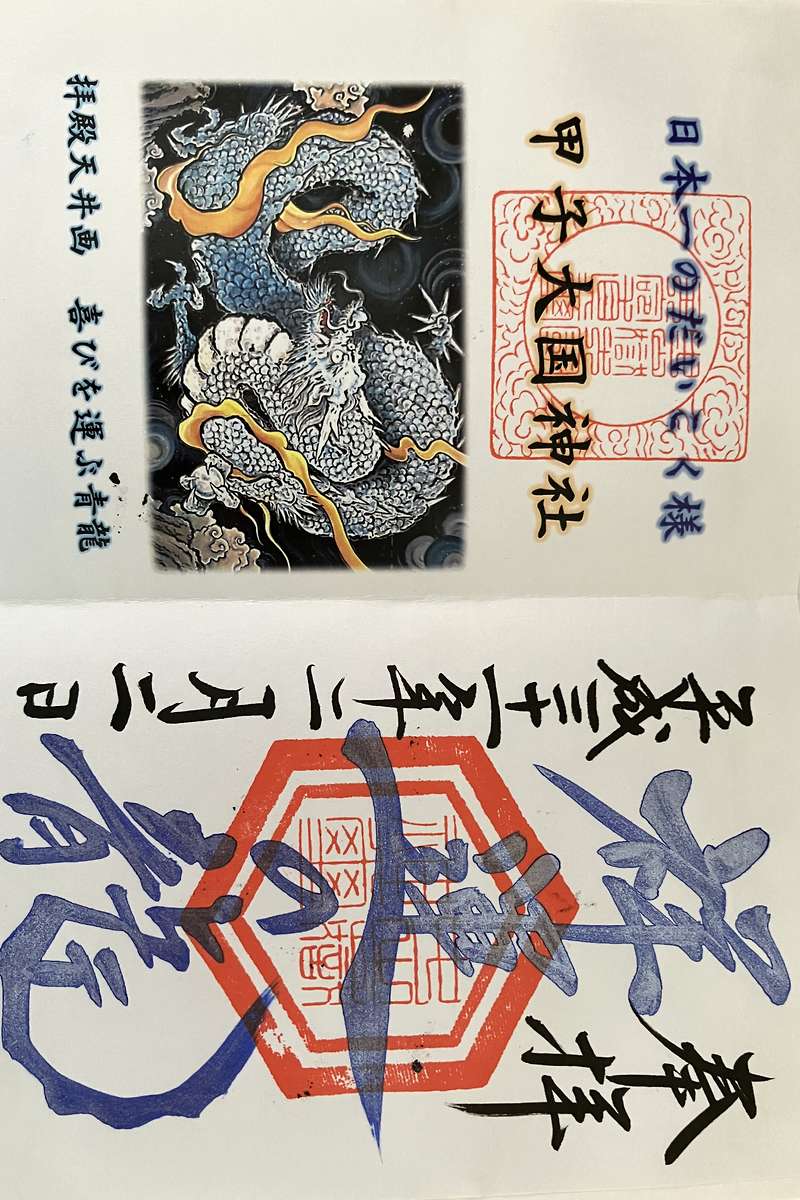 日本一のだいこく様
甲子大国神社
拝殿天井画 喜びを運ぶ青龍
奉拝
の青龍
平成三十一年二月二日